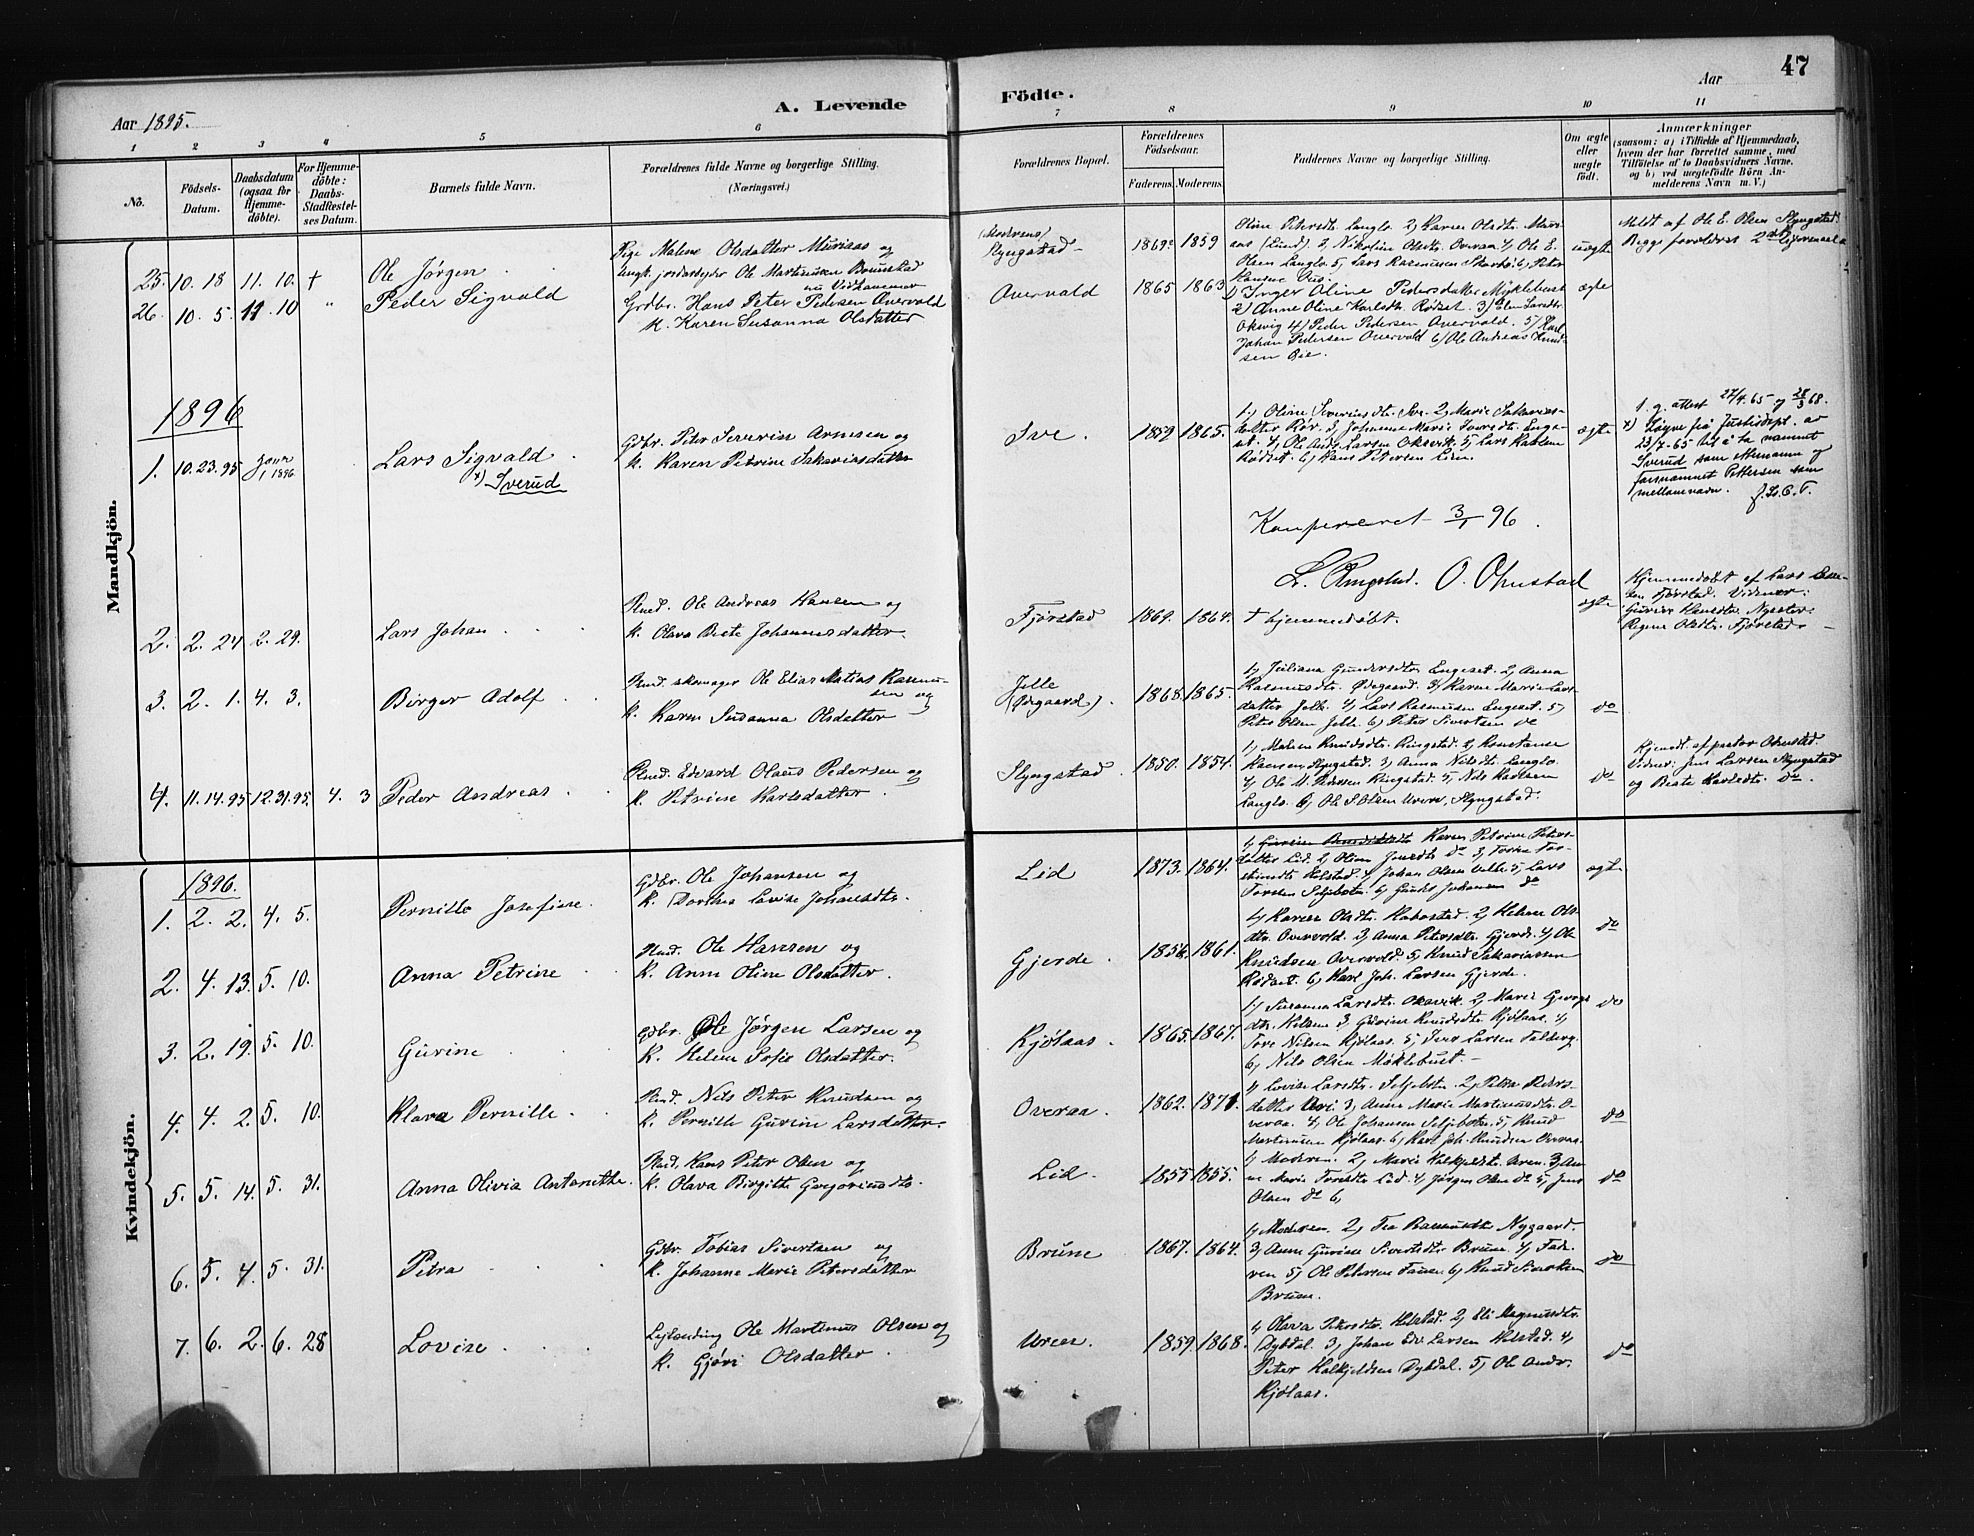 47
Aar 1895.
A. Levende
Födte.
Aar
1 2 3 4 5 6 7 8 9 10 11
No.
Födsels-
Datum.
Daabsdatum
(ogsaa for
Hjemme-
döbte).
For Hjemme-
döbte:
Daabs-
Stadfæstel-
ses Datum.
Barnets fulde Navn.
Forældrenes fulde Navne og borgerlige Stilling.
(Næringsvei.)
Forældrenes Bopæl.
Forældrenes
Födselsaar.
Faderens. Moderens.
Faddernes Navne og borgerlige Stilling.
Om ægte
eller
uægte
födt.
Anmærkninger
(saasom: a) i Tilfælde af Hjemmedaab,
hvem der har forrettet samme, med
Tilföielse af to Daabsvidners Navne,
og b) ved uægtefödte Börn An-
melderens Navn m. V.)
Mandkjön.
25. 10. 18 11. 10. † Ole Jørgen
Pige Malene Olsdatter Muriaas og
Ungk. Ole Martinusen Brunstad
(Moderens)
Slyngstad
1869? 1859
uægte
Meldt af Ole E. Olsen Slyngstad.
26. 10. 5. 11. 10 " Peder Sigvald
Grdbr. Hans Peter Pedersen Overvold
K. Karen Susanna Olsdatter
Overvold
1865 1863
1) Inger Oline Pedersdatter Myklebust
2) Anne Oline Karlsdtr. Rødset. 3)
Oksvig 4) Peder Pedersen Overvold. 5) Karl
Johan Pedersen Overvold 6) Ole Andreas Knud-
sen
ægte
1896
1. 10. 23. 95 1 1896 Lars Sigvald
x) Sverud
Gdbr. Peter Severin Arnesen og
K. Karen Petrine Sakariasdatter
Sve.
1859 1865.
1.) Oline Severinsdtr. Sve. 2) Marie Sakarias-
datter Rør. 3) Johanne Marie
4) Ole Ands. Larsen Oksvik. 5) Lars Karlsen
Rødset. 6) Hans Petersen Lien.
ægte
1. g. attest 27/4. 65. 28/3 68.
x) Løyve frå Justisdept. av
23/7-65 til å ta namnet
Sverud som etternamn og
fornamnet Pettersen som
mellomnavn.
Konfereret 3/1 96.
L. Ringstad. O. Ohnstad
2. 2. 24 2. 29. Lars Johan
Ole Andreas Hansen og
K. Olava Bente Johannesdatter.
Fjørstad
1869. 1864.
† hjemmedøbt.
ægte
Hjemmedøbt af Lars
Fjørstad. Vidner:
3. 2. 1. 4. 3. Birger Adolf
skomager Ole Elias Matias Rasmu-
sen og
K. Karen Susanna Olsdatter
Jelle
(Ødegaard)
1868. 1865.
1) Juliana Gundersdtr. Engeset. 2) Anna
Rasmusdtr. Ødegaard. 3) Karen Marie Lars-
datter Jelle. 4) Lars Rasmussen Engeset. 5)
Peter Olsen Jelle. 6) Peter Sivertsen do
do
4. 11. 14. 95 12. 31. 95. 4. 3 Peder Andreas
Edvard Olaus Pedersen og
K. Petrine Karlsdatter.
Slyngstad
1850. 1854.
1) Malene Knudsdtr. Ringstad. 2) Konstanse
Hansen, Slyngstad. 3) Anna Nilsdtr. Langlo.
4) Ole M. Pedersen Ringstad. 5) Nils Karlsen
Langlo. 6) Ole S. Olsen Uren, Slyngstad.
do
Hjemdt. af pastor Ohnstad.
Vidner: Jens Larsen Slyngstad
og Beate Karlsdtr. do.
Kvindekjön.
1896.
1. 2. 2. 4. 5. Pernille Josefine.
Gdbr. Ole Johansen og
K. Dorthea Lovise Johansdtr.
Lid
1873. 1864.
Karen Petrine Peters-
datter Lid. 2) Oline do 3)
Helstad. 4) Johan Olsen 5) Lars
Torsten Seljebotn. 6) Johansen do
ægte
2. 4. 13. 5. 10. Anna Petrine
Ole Hansen og
K. Anne Oline Olsdatter.
Gjerde.
1856. 1861.
1) Karen Olsdtr. Habostad. 2) Helene Ols-
dtr. Overvold. 3) Anna Petersdtr. Gjerde. 4) Ole
Knudsen Overvold. 5) Knud Sakariassen
Rødset. 6) Karl Joh. Larsen Gjerde.
do
3. 2. 19. 5. 10. Gurine
Gdbr. Ole Jørgen Larsen og
K. Helene Sofie Olsdatter.
Kjølaas.
1865. 1867.
1) Susanna Larsdtr. Oksvik. 2) Marie
3) Gurine Knudsdtr. Kjølaas. 4)
Tore Nilsen Kjølaas. 5) Iver Larsen
6) Nils Olsen Møklebust.
do
4. 4. 2. 5. 10. Klara Pernille
Nils Peter Knudsen og
K. Pernille Gurine Larsdatter.
Overaa.
1862. 1871.
1) Lovise Larsdtr. Seljebotn. 2) Petra Peders-
datter 3) Anne Marie Martinusdtr. O-
veraa. 4) Ole Johansen Seljebotn. 5) Knud
Martinusen Kjølaas. 6) Karl Joh. Knudsen Overaa.
do
5. 5. 14. 5. 31. Anna Olivia Antonette.
Hans Peter Olsen og
K. Olava Birgitte Gregoriusdtr.
Lid.
1855 1855.
1) Moderen. 2) Marie Halkjeldsdtr. Uren. 3) An-
ne Marie Lid. 4) Jørgen Olsen do 5) Jens
Olsen do 6)
do
6. 5. 4. 5. 31. Petra
Gdbr. Tobias Sivertsen og
K. Johanne Marie Petersdatter
Brune
1867. 1864.
1) Moderen. 2) Tea Rasmusdtr. Nygaard.
3) Anne Gurine Sivertsdtr. Brune. 4) Fade-
ren 5) Ole Petersen 6) Knud Sivertsen
Brune.
do
7. 6. 2. 6. 28 Lovise
Leilænding Ole Martinus Olsen og
K. Gjøri Olsdatter.
Uren.
1859. 1868.
1) Olava Petersdtr. Helstad. 2) Eli Magnusdtr.
Dybdal. 3) Johan Edv. Larsen Helstad. 4)
Peter Halkjeldsen Dybdal. 5) Ole Andr.
Kjølaas.
do